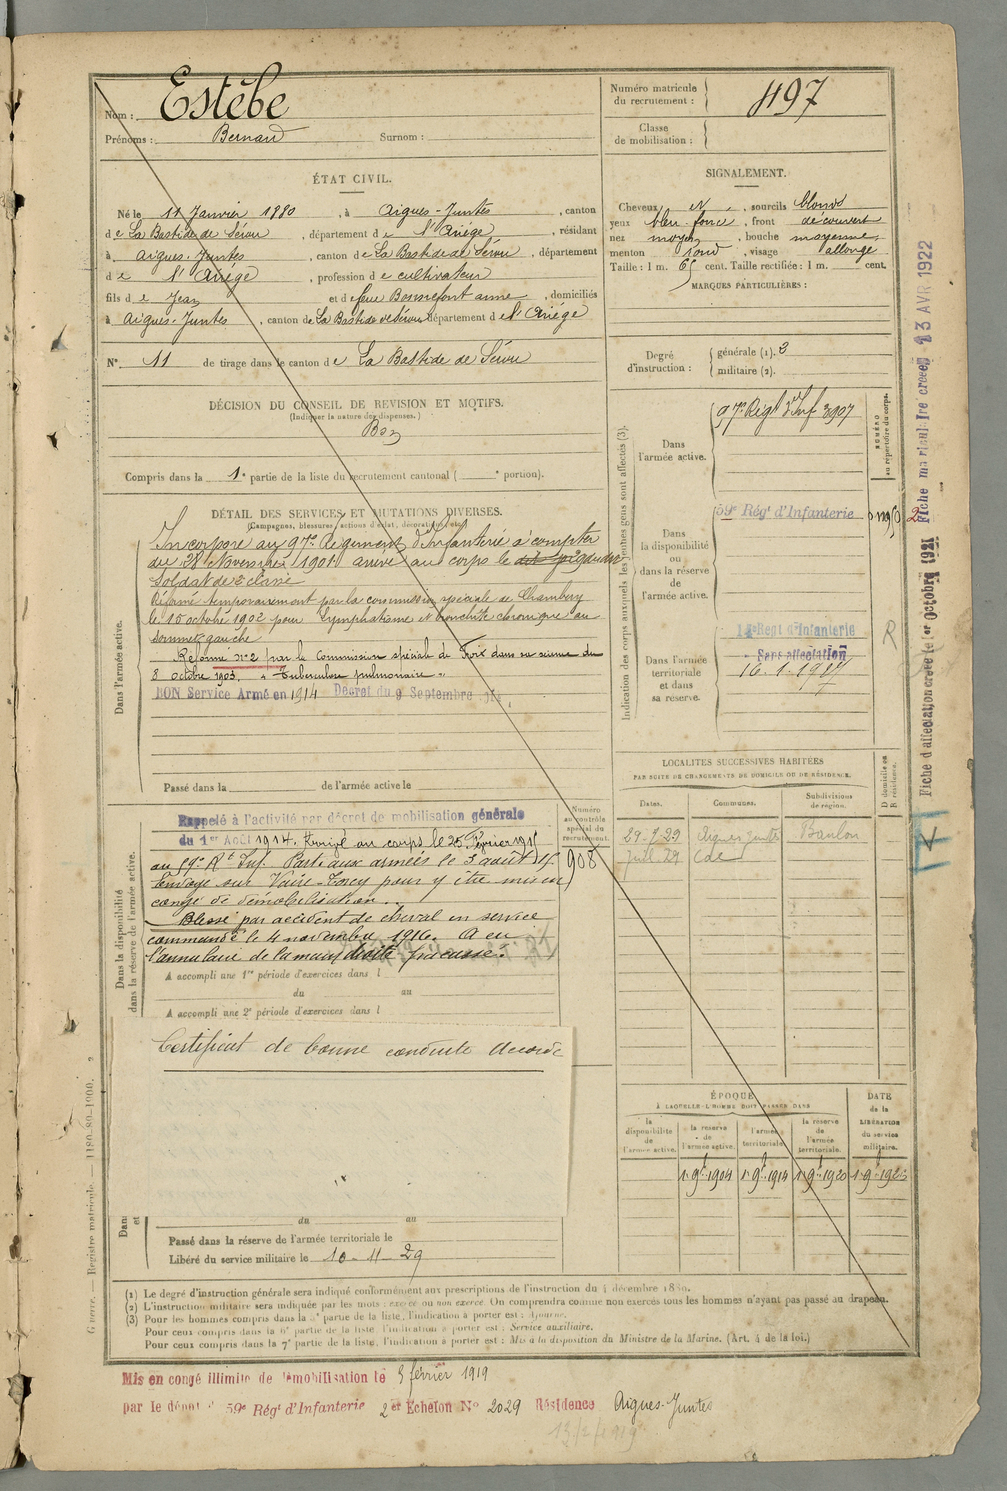 Nom : Estèbe
Prénoms : Bernard Surnom :
Numéro matricule du recrutement : 497
Classe de mobilisation :
ÉTAT CIVIL.
Né le 11 Janvier 1880, à Aigues-Juntes, canton
de La Bastide de Sérou, département de l'Ariège, résidant
à Aigues-Juntes, canton de La Bastide de Sérou, département
de l'Ariège, profession de cultivateur
fils de Jean et de feue Bonnefont anne, domiciliés
à Aigues-Juntes, canton de La Bastide de Sérou département de l'Ariège
N° 11 de tirage dans le canton de La Bastide de Sérou
SIGNALEMENT.
Cheveux N, sourcils blonds
yeux bleu foncé, front découvert
nez moyen, bouche moyenne
menton rond, visage allongé
Taille : 1 m. 65 cent. Taille rectifiée : 1 m. cent.
MARQUES PARTICULIÈRES :
Degré d'instruction : générale (1). 3
militaire (2).
DÉCISION DU CONSEIL DE REVISION ET MOTIFS.
(Indiquer la nature des dispenses.)
Bon
Compris dans la 1e partie de la liste du recrutement cantonal ( e portion).
DÉTAIL DES SERVICES ET MUTATIONS DIVERSES.
(Campagnes, blessures, actions d'éclat, décorations, etc.)
Dans l'armée active.
Incorporé au 97e Régiment d'Infanterie à compter
du Novembre 1901 arrivé au corps le dit jour
Soldat de 2e classe
Réformé temporairement par la commission spéciale de Chambéry
le 15 octobre 1902 pour Lymphatisme et bronchite chronique au
sommet gauche
Réformé n° 2 par la Commission spéciale de Foix dans sa séance du
8 octobre 1903. « Tuberculose pulmonaire »
BON Service Armé en 1914 Décret du 9 Septembre
Passé dans la de l'armée active le
Dans la disponibilité ou dans la réserve de l'armée active.
Numéro au contrôle spécial du recrutement.
908
Rappelé à l'activité par décret de mobilisation générale
du 1er Août 1914. Arrivé au corps le 25 Février 1915
au 59e Rt Inf. Parti aux armées le 3 août 15.
Envoyé sur Vaire-Torcy pour y être mis en
congé de démobilisation.
Blessé par accident de cheval en service
commandé le 4 novembre 1916. A eu
l'annulaire de la main droite fracassé.
A accompli une 1re période d'exercices dans l
du au
A accompli une 2e période d'exercices dans l
Certificat de bonne conduite Accordé
du au
Passé dans la réserve de l'armée territoriale le
Libéré du service militaire le 10 - 11 - 29
Indication des corps auxquels les jeunes gens sont affectés (3).
NUMÉRO au répertoire du corps.
Dans l'armée active.
97e Régt d'Inf 3907
Dans la disponibilité ou dans la réserve de l'armée active.
59e Régt d'Infanterie
Dans l'armée territoriale et dans sa réserve.
Regt d'Infanterie
Sans affectation
16.1.1927
R
LOCALITÉS SUCCESSIVES HABITÉES
PAR SUITE DE CHANGEMENTS DE DOMICILE OU DE RÉSIDENCE.
Dates. Communes. Subdivisions de région. D domicile ou R résidence.
29-7-29 Aigues Juntes
ÉPOQUE
À LAQUELLE L'HOMME DOIT PASSER DANS
la disponibilité de l'armée active. la réserve de l'armée active. l'armée territoriale. la réserve de l'armée territoriale.
DATE de la LIBÉRATION du service militaire.
1 9 1904 1 9 1914 1 9 1920
Fiche d'affectation créée le 1er Octobre 1921 Fiche matriculaire créée 13 AVR 1922
(1) Le degré d'instruction générale sera indiqué conformément aux prescriptions de l'instruction du 4 décembre 1889.
(2) L'instruction militaire sera indiquée par les mots : exercé ou non exercé. On comprendra comme non exercés tous les hommes n'ayant pas passé au drapeau.
(3) Pour les hommes compris dans la 3e partie de la liste, l'indication à porter est : Ajourné.
Pour ceux compris dans la 6e partie de la liste, l'indication à porter est : Service auxiliaire.
Pour ceux compris dans la 7e partie de la liste, l'indication à porter est : Mis à la disposition du Ministre de la Marine. (Art. 4 de la loi.)
Guerre. — Registre matricule. — 1180-89-1900.
Mis en congé illimité de démobilisation le 5 février 1919
par le dépôt 59e Régt d'Infanterie 2er Echelon N° 2029 Résidence Aigues-Juntes